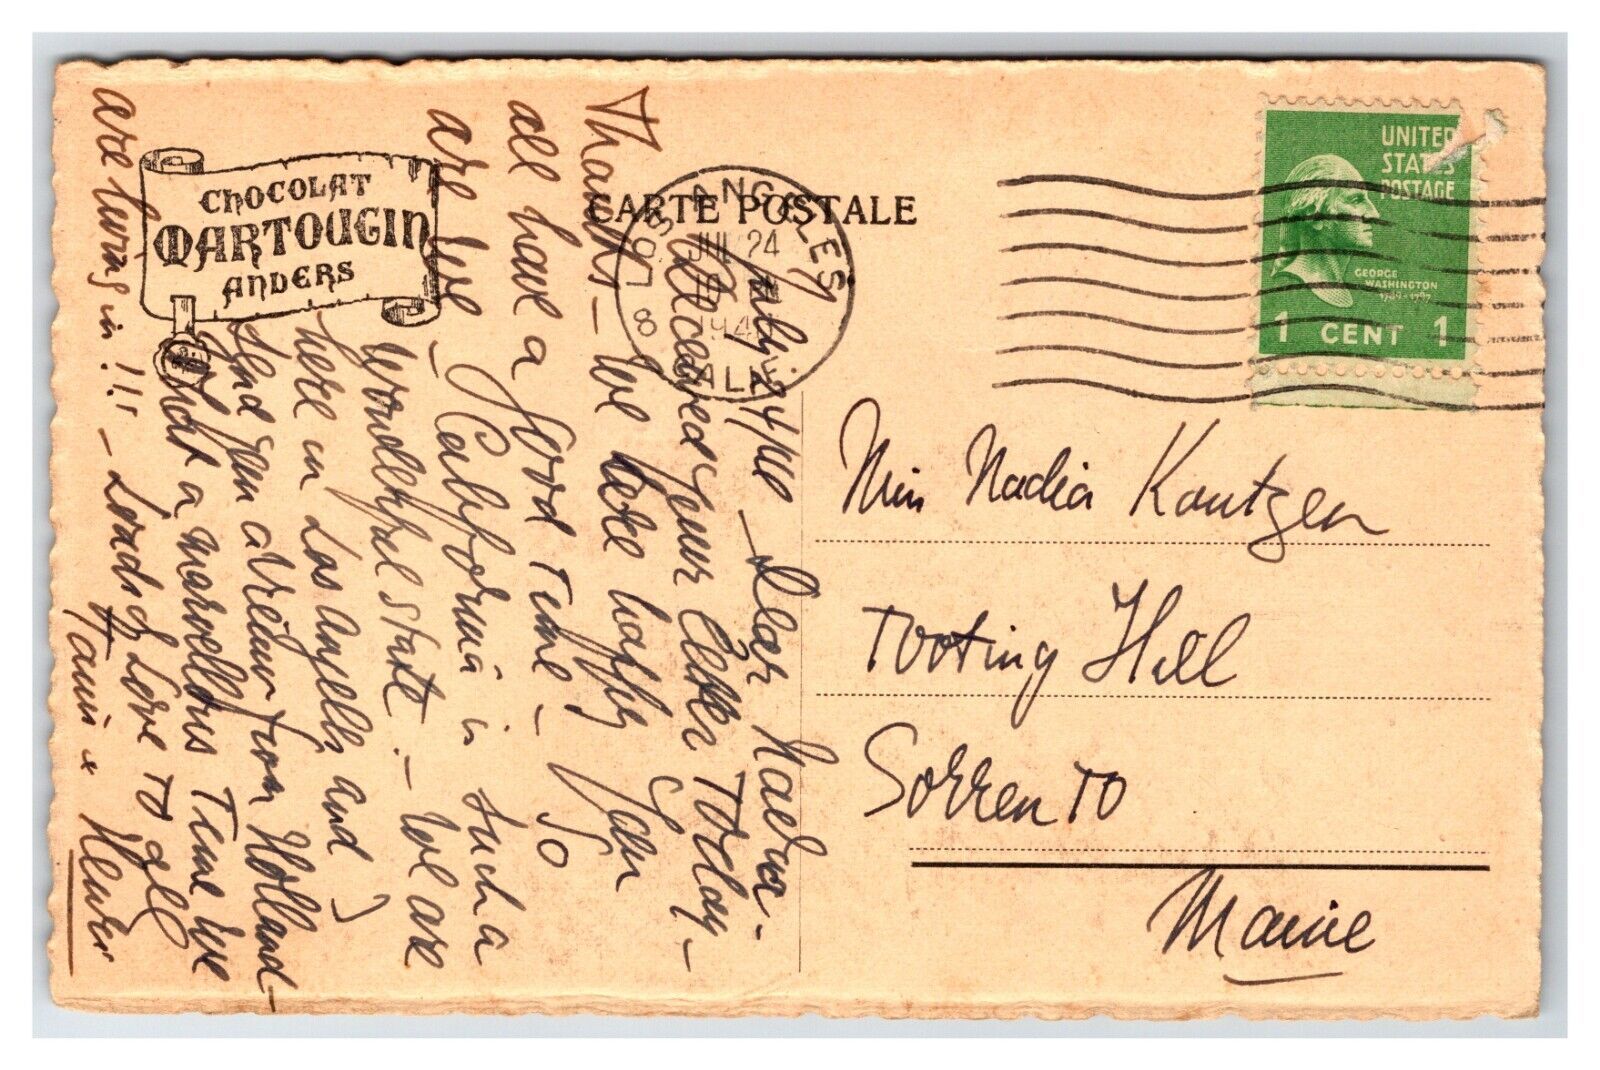 CARTE POSTALE
CHOCOLAT
MARTOUGIN
ANVERS
LOS ANGELES
JUL 24
CALIF
8
UNITED
STATES
POSTAGE
GEORGE
WASHINGTON
1789-1797
1 CENT 1
July 24 — Dear Nadia -
Received your letter Today —
Thanks — We were happy you
all have a good Time — So
are we — California is such a
wonderful state — We are
here in Los Angeles and
send you a from Holland —
What a marvellous Time we
are living in !!! — Loads of Love to all
Hanni
Miss Nadia Kautzen
Tooting Hill
Sorrento
Maine